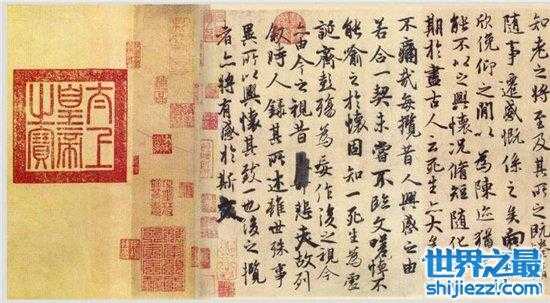 知老之將至及其所之既
隨事遷感慨係之矣向
欣俛仰之間以為陳迹猶
能不以之興懷況脩短隨化
期於盡古人云死生亦大
不痛哉每攬昔人興感之由
若合一契未嘗不臨文嗟悼不
能喻之於懷固知一死生為虛
誕齊彭殤為妄作後之視今
亦由今之視昔悲夫故列
敘時人錄其所述雖世殊事
異所以興懷其致一也後之攬
者亦將有感於斯文
太上皇帝之寶
世界之最
shijiezui.com